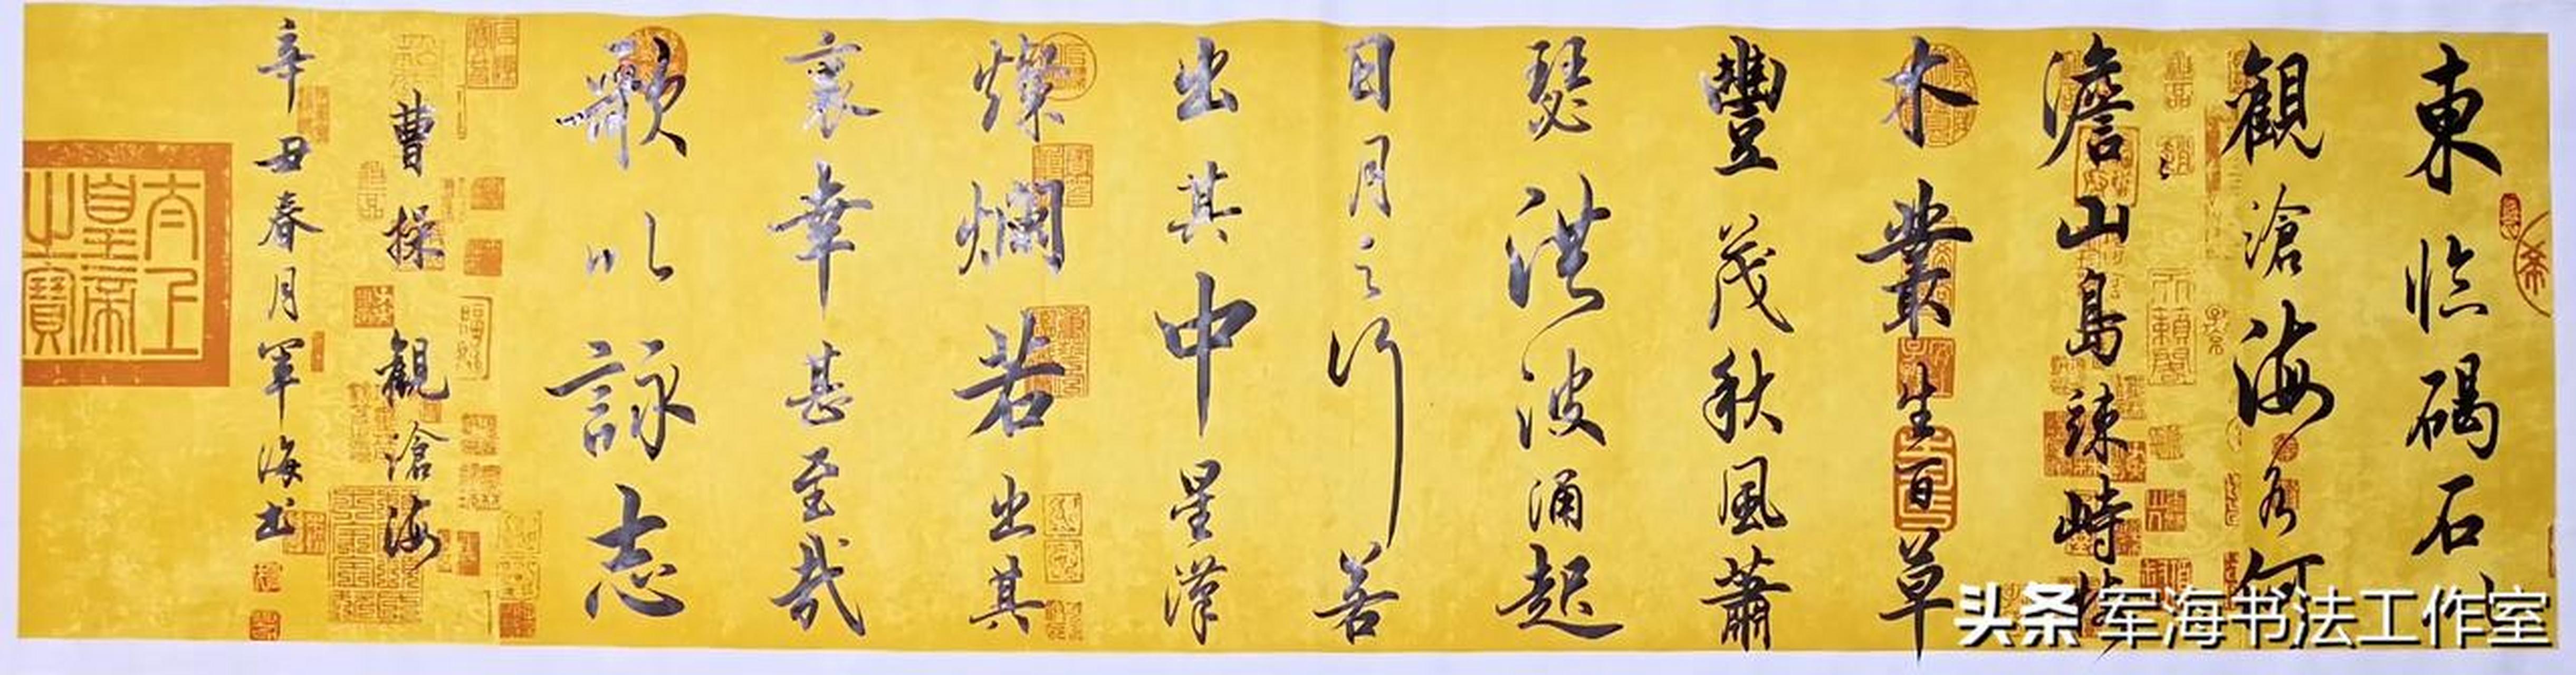 東臨碣石以
觀滄海水何
澹〻山島竦峙樹
木叢生百草
豐茂秋風蕭
瑟洪波涌起
日月之行若
出其中星漢
燦爛若出其
裏幸甚至哉
歌以詠志
曹操觀滄海
辛丑春月军海书
太上皇帝之寶
头条 军海书法工作室